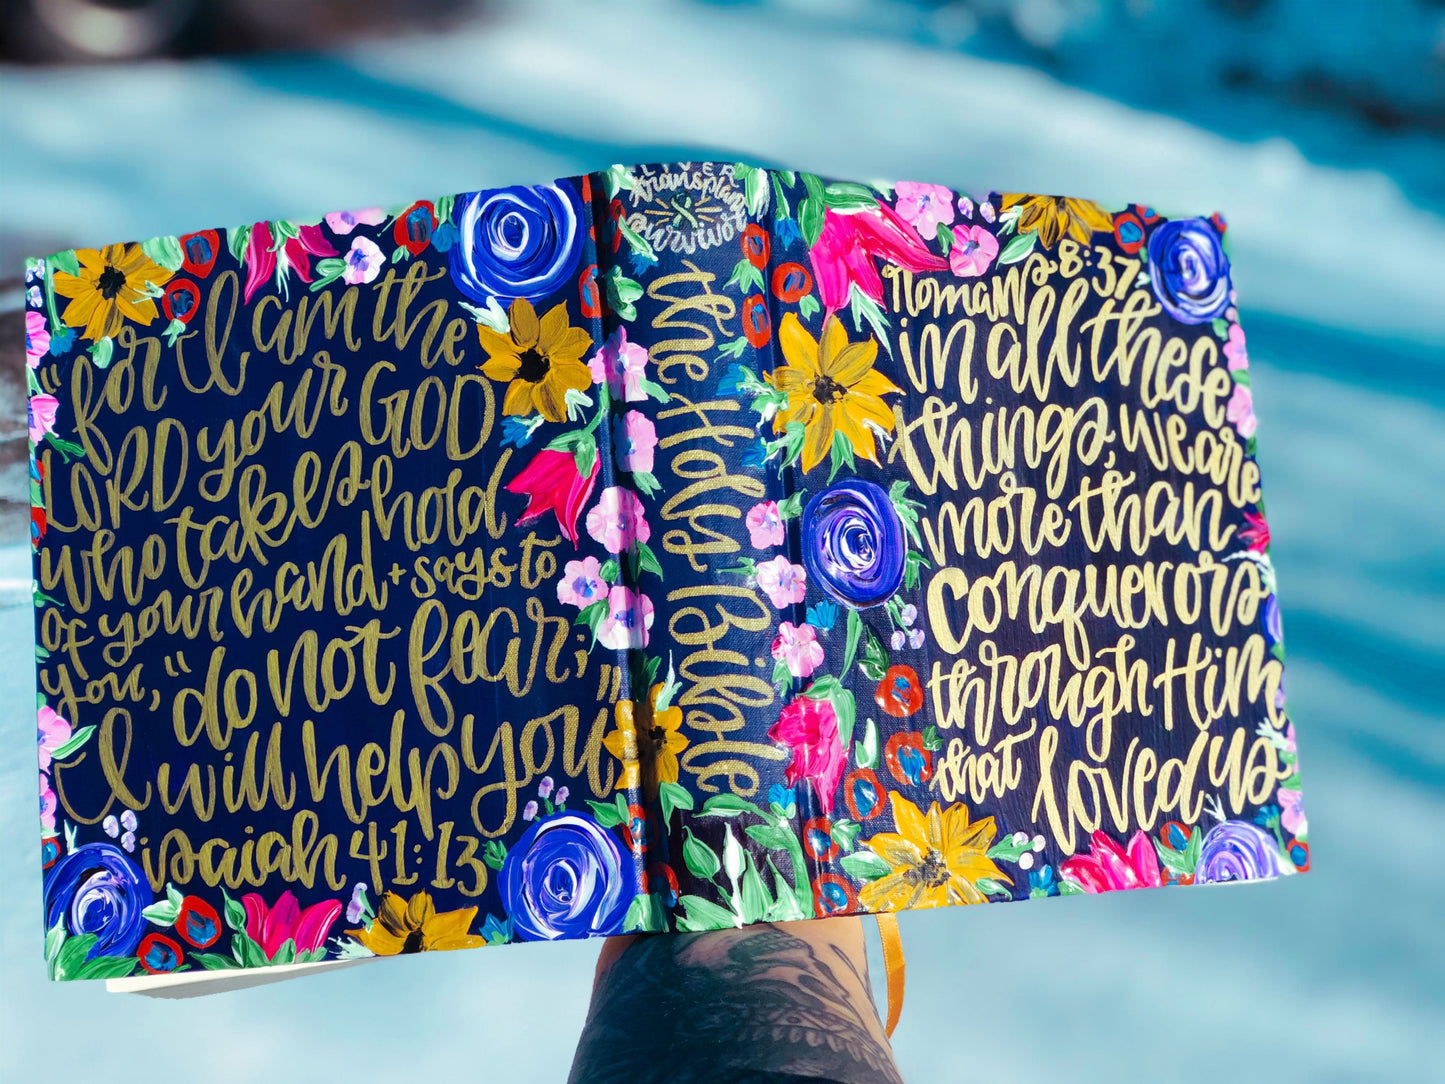 "for I am the
LORD your GOD
who takes hold
of your hand + says to
you, "do not fear;
I will help you"
isaiah 41:13
LIVER
transplant
survivor
the Holy Bible
Romans 8:37
in all these
things, we are
more than
conquerors
through Him
that loved us